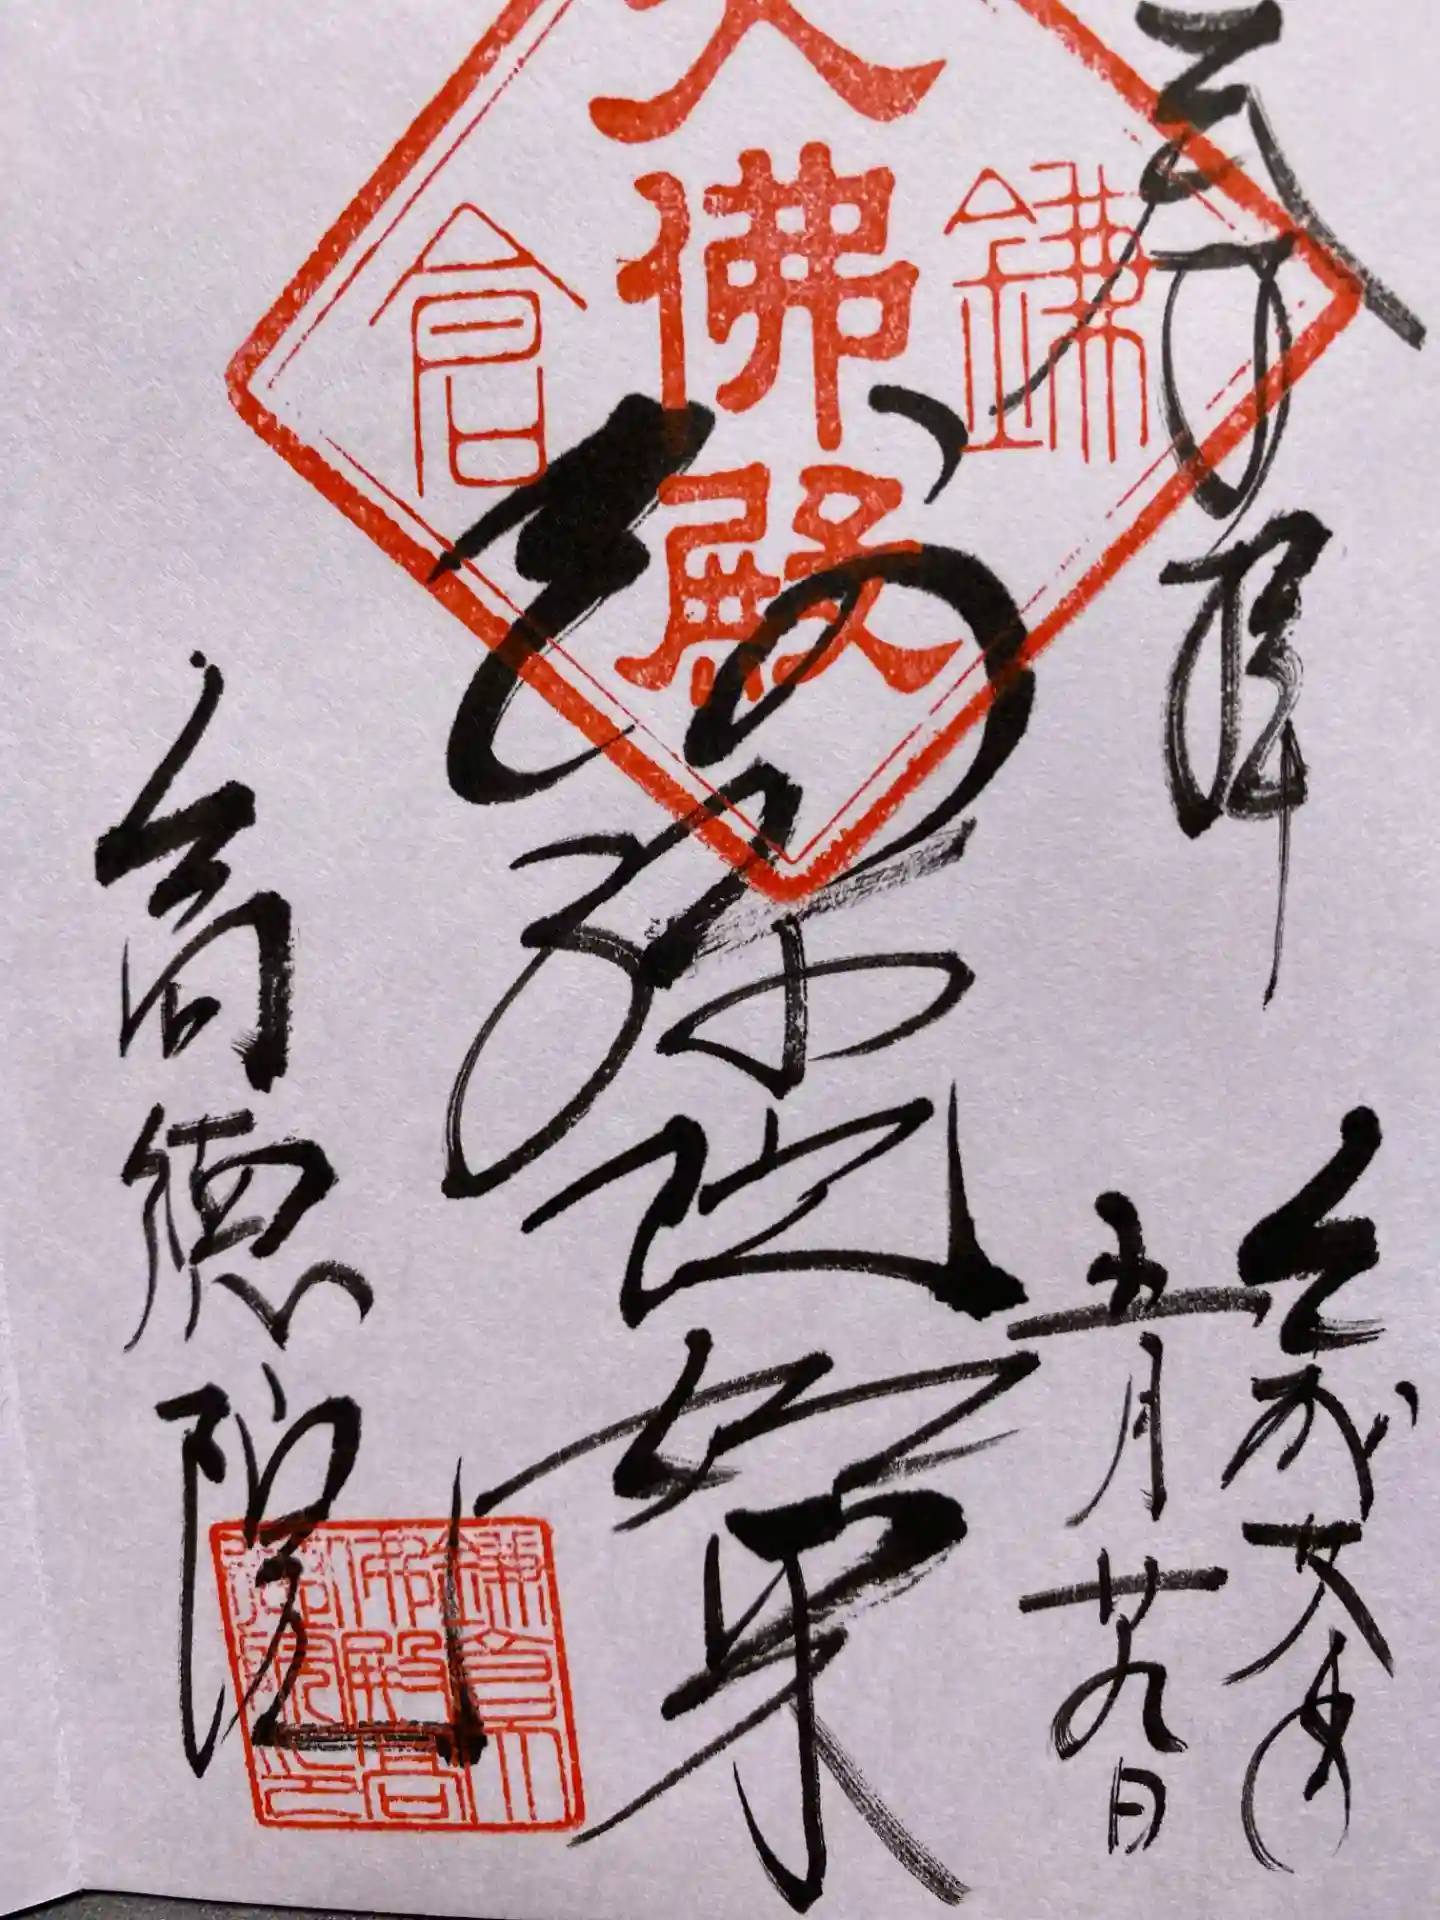 拝
令和六年
五月廿九日
鎌
大佛殿
倉
阿弥陀如来
高徳院
鎌倉大
佛殿高
徳院之印